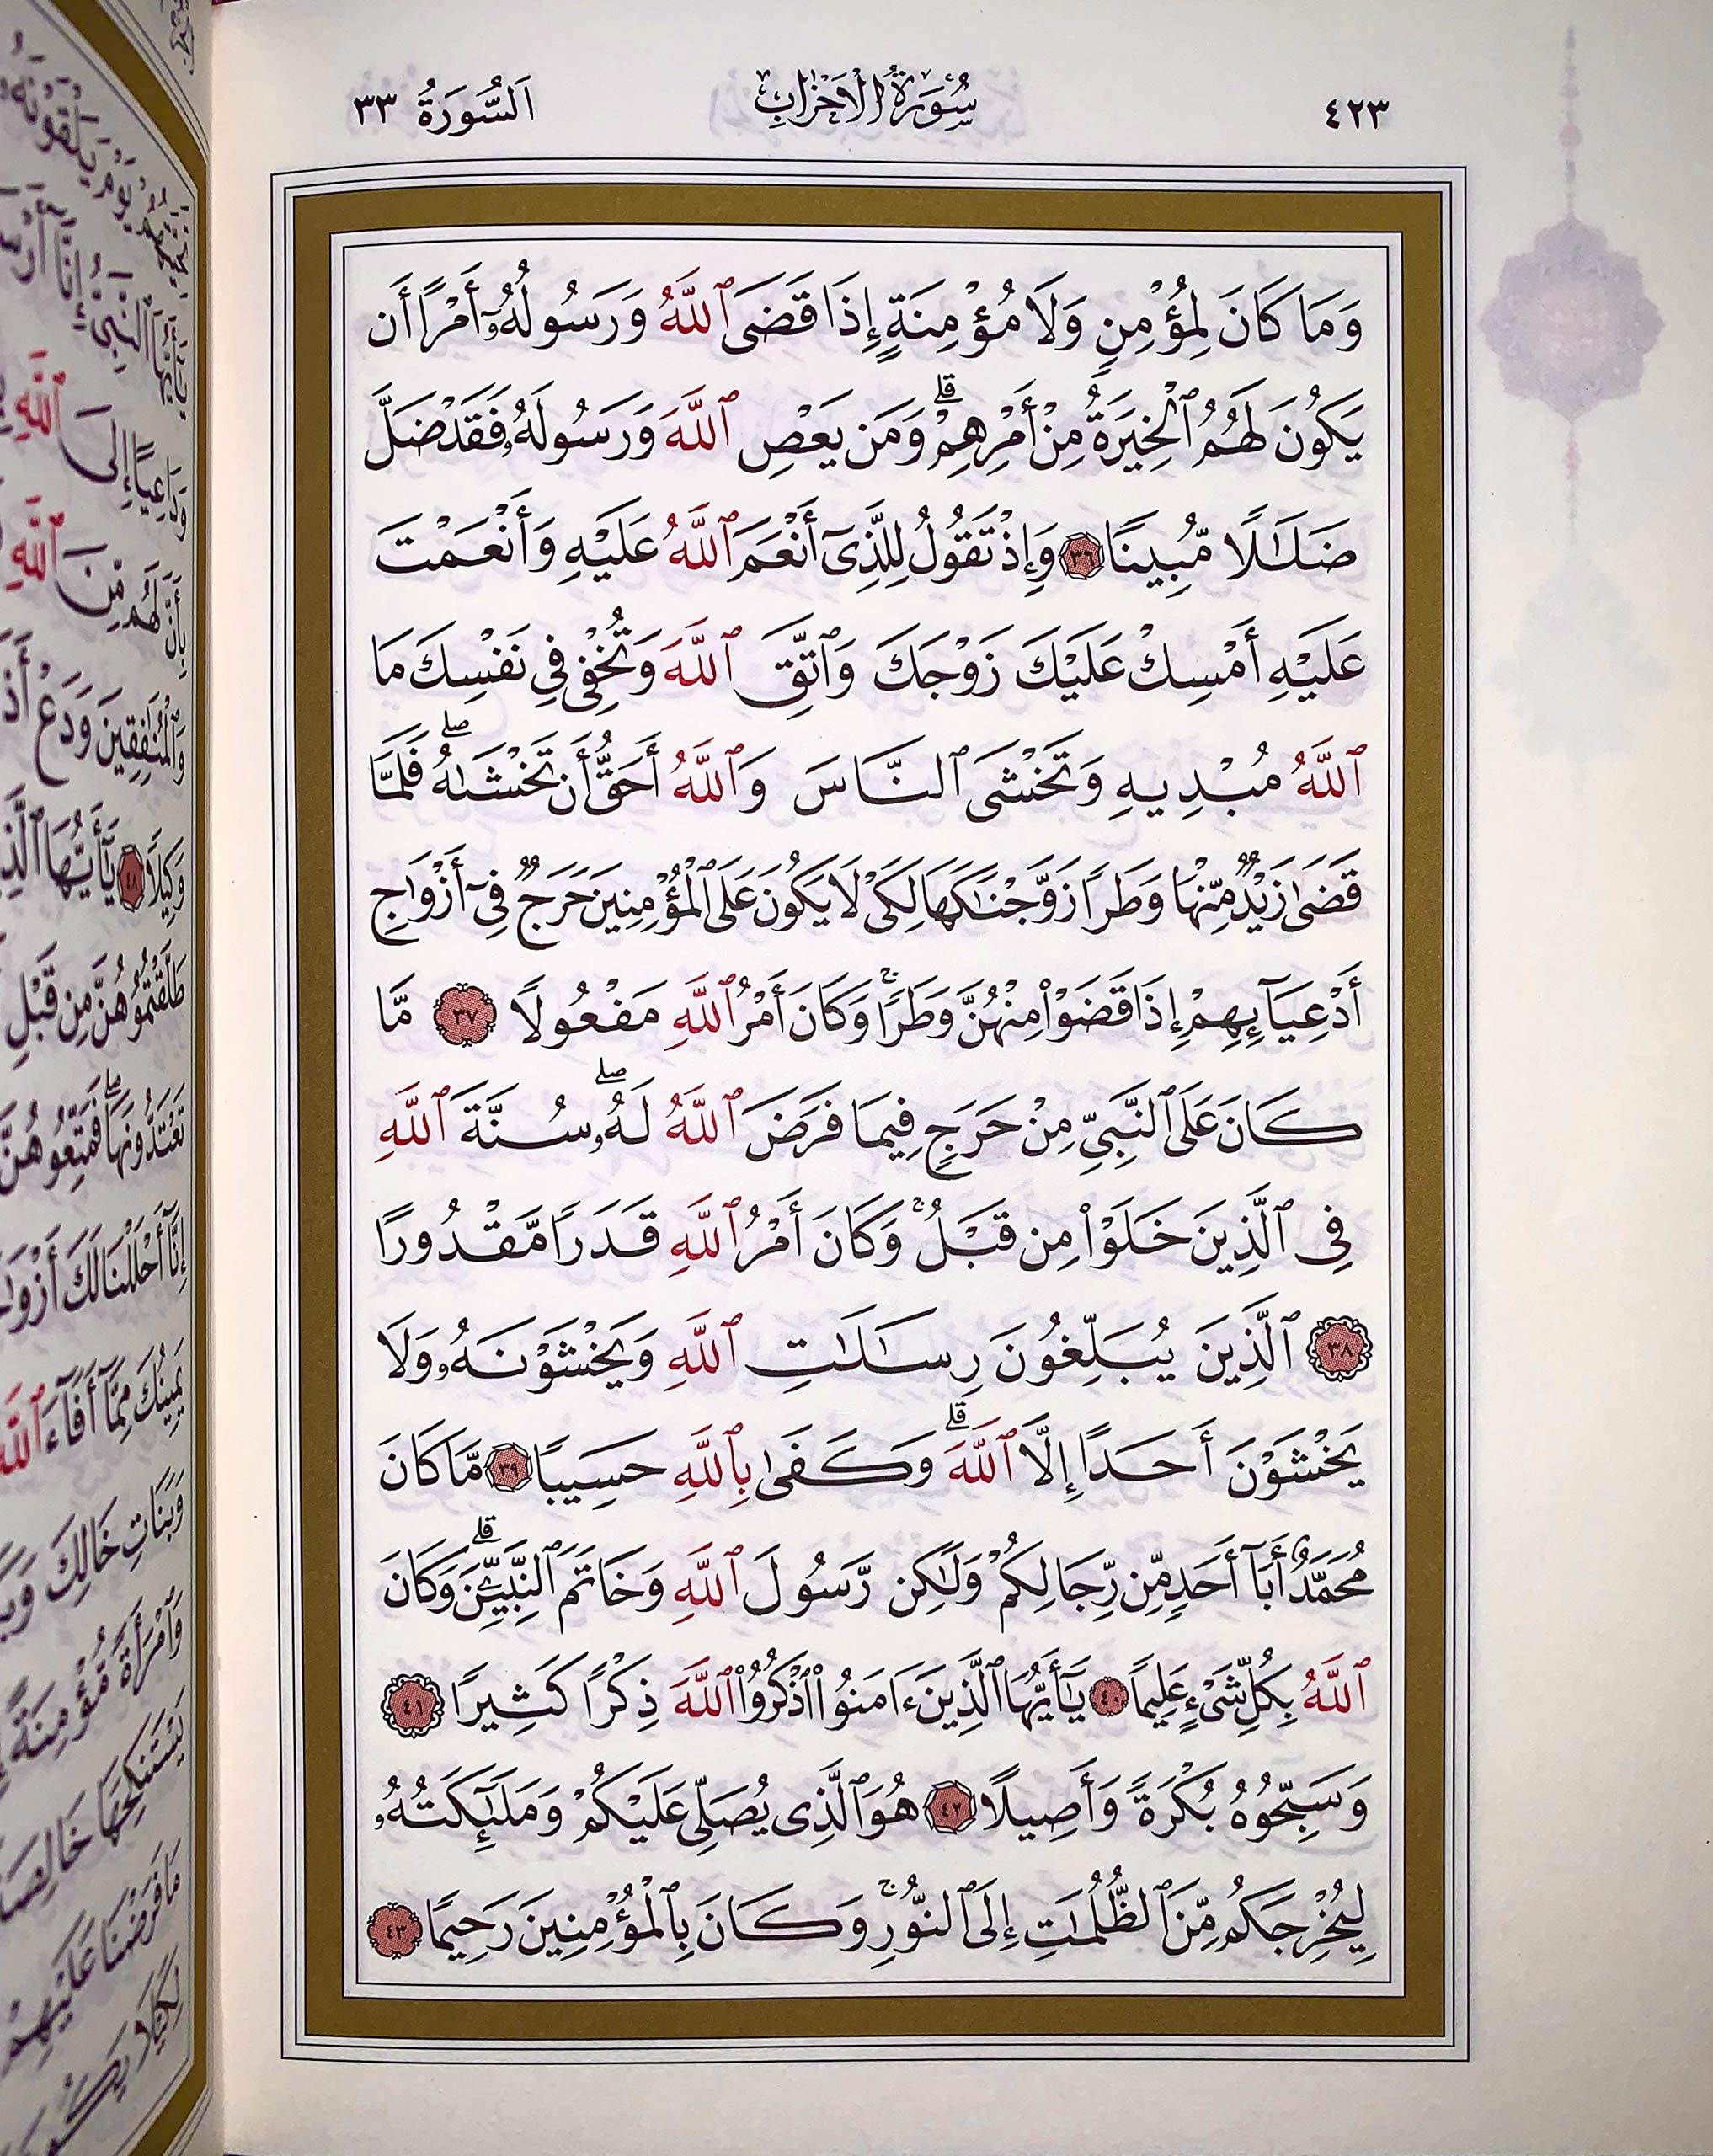 ٤٢٣
سُورَةُ الْاَحْزَابِ
اَلسُّورَةُ ٣٣
وَمَا كَانَ لِمُؤْمِنٍ وَلَا مُؤْمِنَةٍ إِذَا قَضَى ٱللَّهُ وَرَسُولُهُۥٓ أَمْرًا أَن
يَكُونَ لَهُمُ ٱلْخِيَرَةُ مِنْ أَمْرِهِمْ ۗ وَمَن يَعْصِ ٱللَّهَ وَرَسُولَهُۥ فَقَدْ ضَلَّ
ضَلَـٰلًا مُّبِينًا ٣٦ وَإِذْ تَقُولُ لِلَّذِىٓ أَنْعَمَ ٱللَّهُ عَلَيْهِ وَأَنْعَمْتَ
عَلَيْهِ أَمْسِكْ عَلَيْكَ زَوْجَكَ وَٱتَّقِ ٱللَّهَ وَتُخْفِى فِى نَفْسِكَ مَا
ٱللَّهُ مُبْدِيهِ وَتَخْشَى ٱلنَّاسَ وَٱللَّهُ أَحَقُّ أَن تَخْشَىٰهُ ۖ فَلَمَّا
قَضَىٰ زَيْدٌ مِّنْهَا وَطَرًا زَوَّجْنَـٰكَهَا لِكَىْ لَا يَكُونَ عَلَى ٱلْمُؤْمِنِينَ حَرَجٌ فِىٓ أَزْوَٰجِ
أَدْعِيَآئِهِمْ إِذَا قَضَوْا۟ مِنْهُنَّ وَطَرًا ۚ وَكَانَ أَمْرُ ٱللَّهِ مَفْعُولًا ٣٧ مَّا
كَانَ عَلَى ٱلنَّبِىِّ مِنْ حَرَجٍ فِيمَا فَرَضَ ٱللَّهُ لَهُۥ ۖ سُنَّةَ ٱللَّهِ
فِى ٱلَّذِينَ خَلَوْا۟ مِن قَبْلُ ۚ وَكَانَ أَمْرُ ٱللَّهِ قَدَرًا مَّقْدُورًا
٣٨ ٱلَّذِينَ يُبَلِّغُونَ رِسَـٰلَـٰتِ ٱللَّهِ وَيَخْشَوْنَهُۥ وَلَا
يَخْشَوْنَ أَحَدًا إِلَّا ٱللَّهَ ۗ وَكَفَىٰ بِٱللَّهِ حَسِيبًا ٣٩ مَّا كَانَ
مُحَمَّدٌ أَبَآ أَحَدٍ مِّن رِّجَالِكُمْ وَلَـٰكِن رَّسُولَ ٱللَّهِ وَخَاتَمَ ٱلنَّبِيِّـۧنَ ۗ وَكَانَ
ٱللَّهُ بِكُلِّ شَىْءٍ عَلِيمًا ٤٠ يَـٰٓأَيُّهَا ٱلَّذِينَ ءَامَنُوا۟ ٱذْكُرُوا۟ ٱللَّهَ ذِكْرًا كَثِيرًا ٤١
وَسَبِّحُوهُ بُكْرَةً وَأَصِيلًا ٤٢ هُوَ ٱلَّذِى يُصَلِّى عَلَيْكُمْ وَمَلَـٰٓئِكَتُهُۥ
لِيُخْرِجَكُم مِّنَ ٱلظُّلُمَـٰتِ إِلَى ٱلنُّورِ ۚ وَكَانَ بِٱلْمُؤْمِنِينَ رَحِيمًا ٤٣